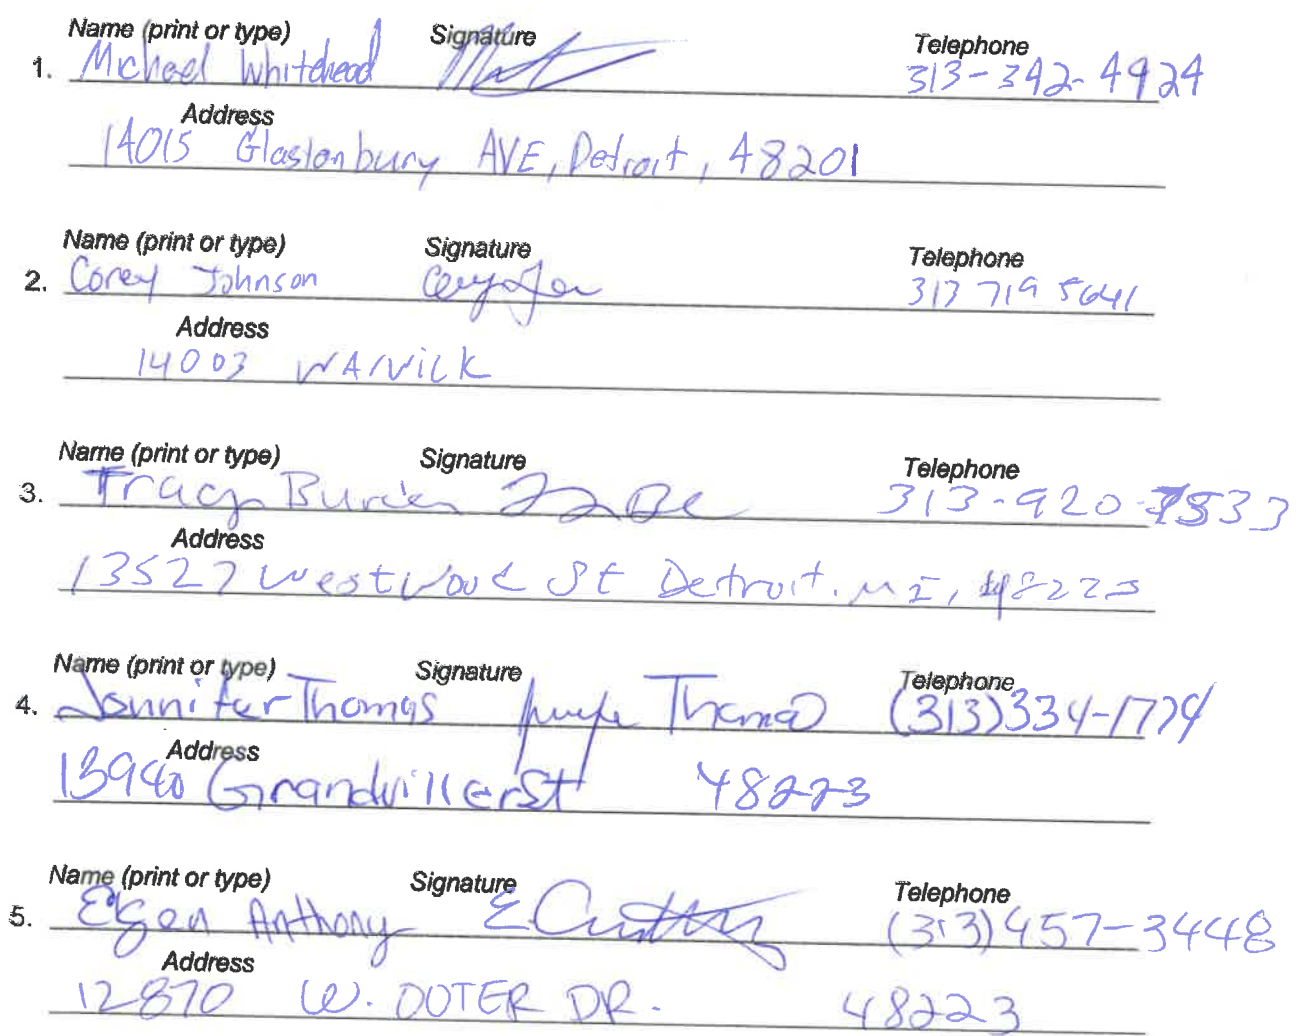 Name (print or type) Signature Telephone
1. Michael Whitehead 313-342-4924
Address
14015 Glastonbury AVE, Detroit, 48201
Name (print or type) Signature Telephone
2. Corey Johnson 313 719 5641
Address
14003 WARWICK
Name (print or type) Signature Telephone
3. Tracy 313-920-7533
Address
13527 Westwood St Detroit. MI, 48223
Name (print or type) Signature Telephone
4. Jennifer Thomas Thomas (313)334-1774
Address
13940 Grandville St 48223
Name (print or type) Signature Telephone
5. Anthony (313)457-3448
Address
12870 W. OUTER DR. 48223